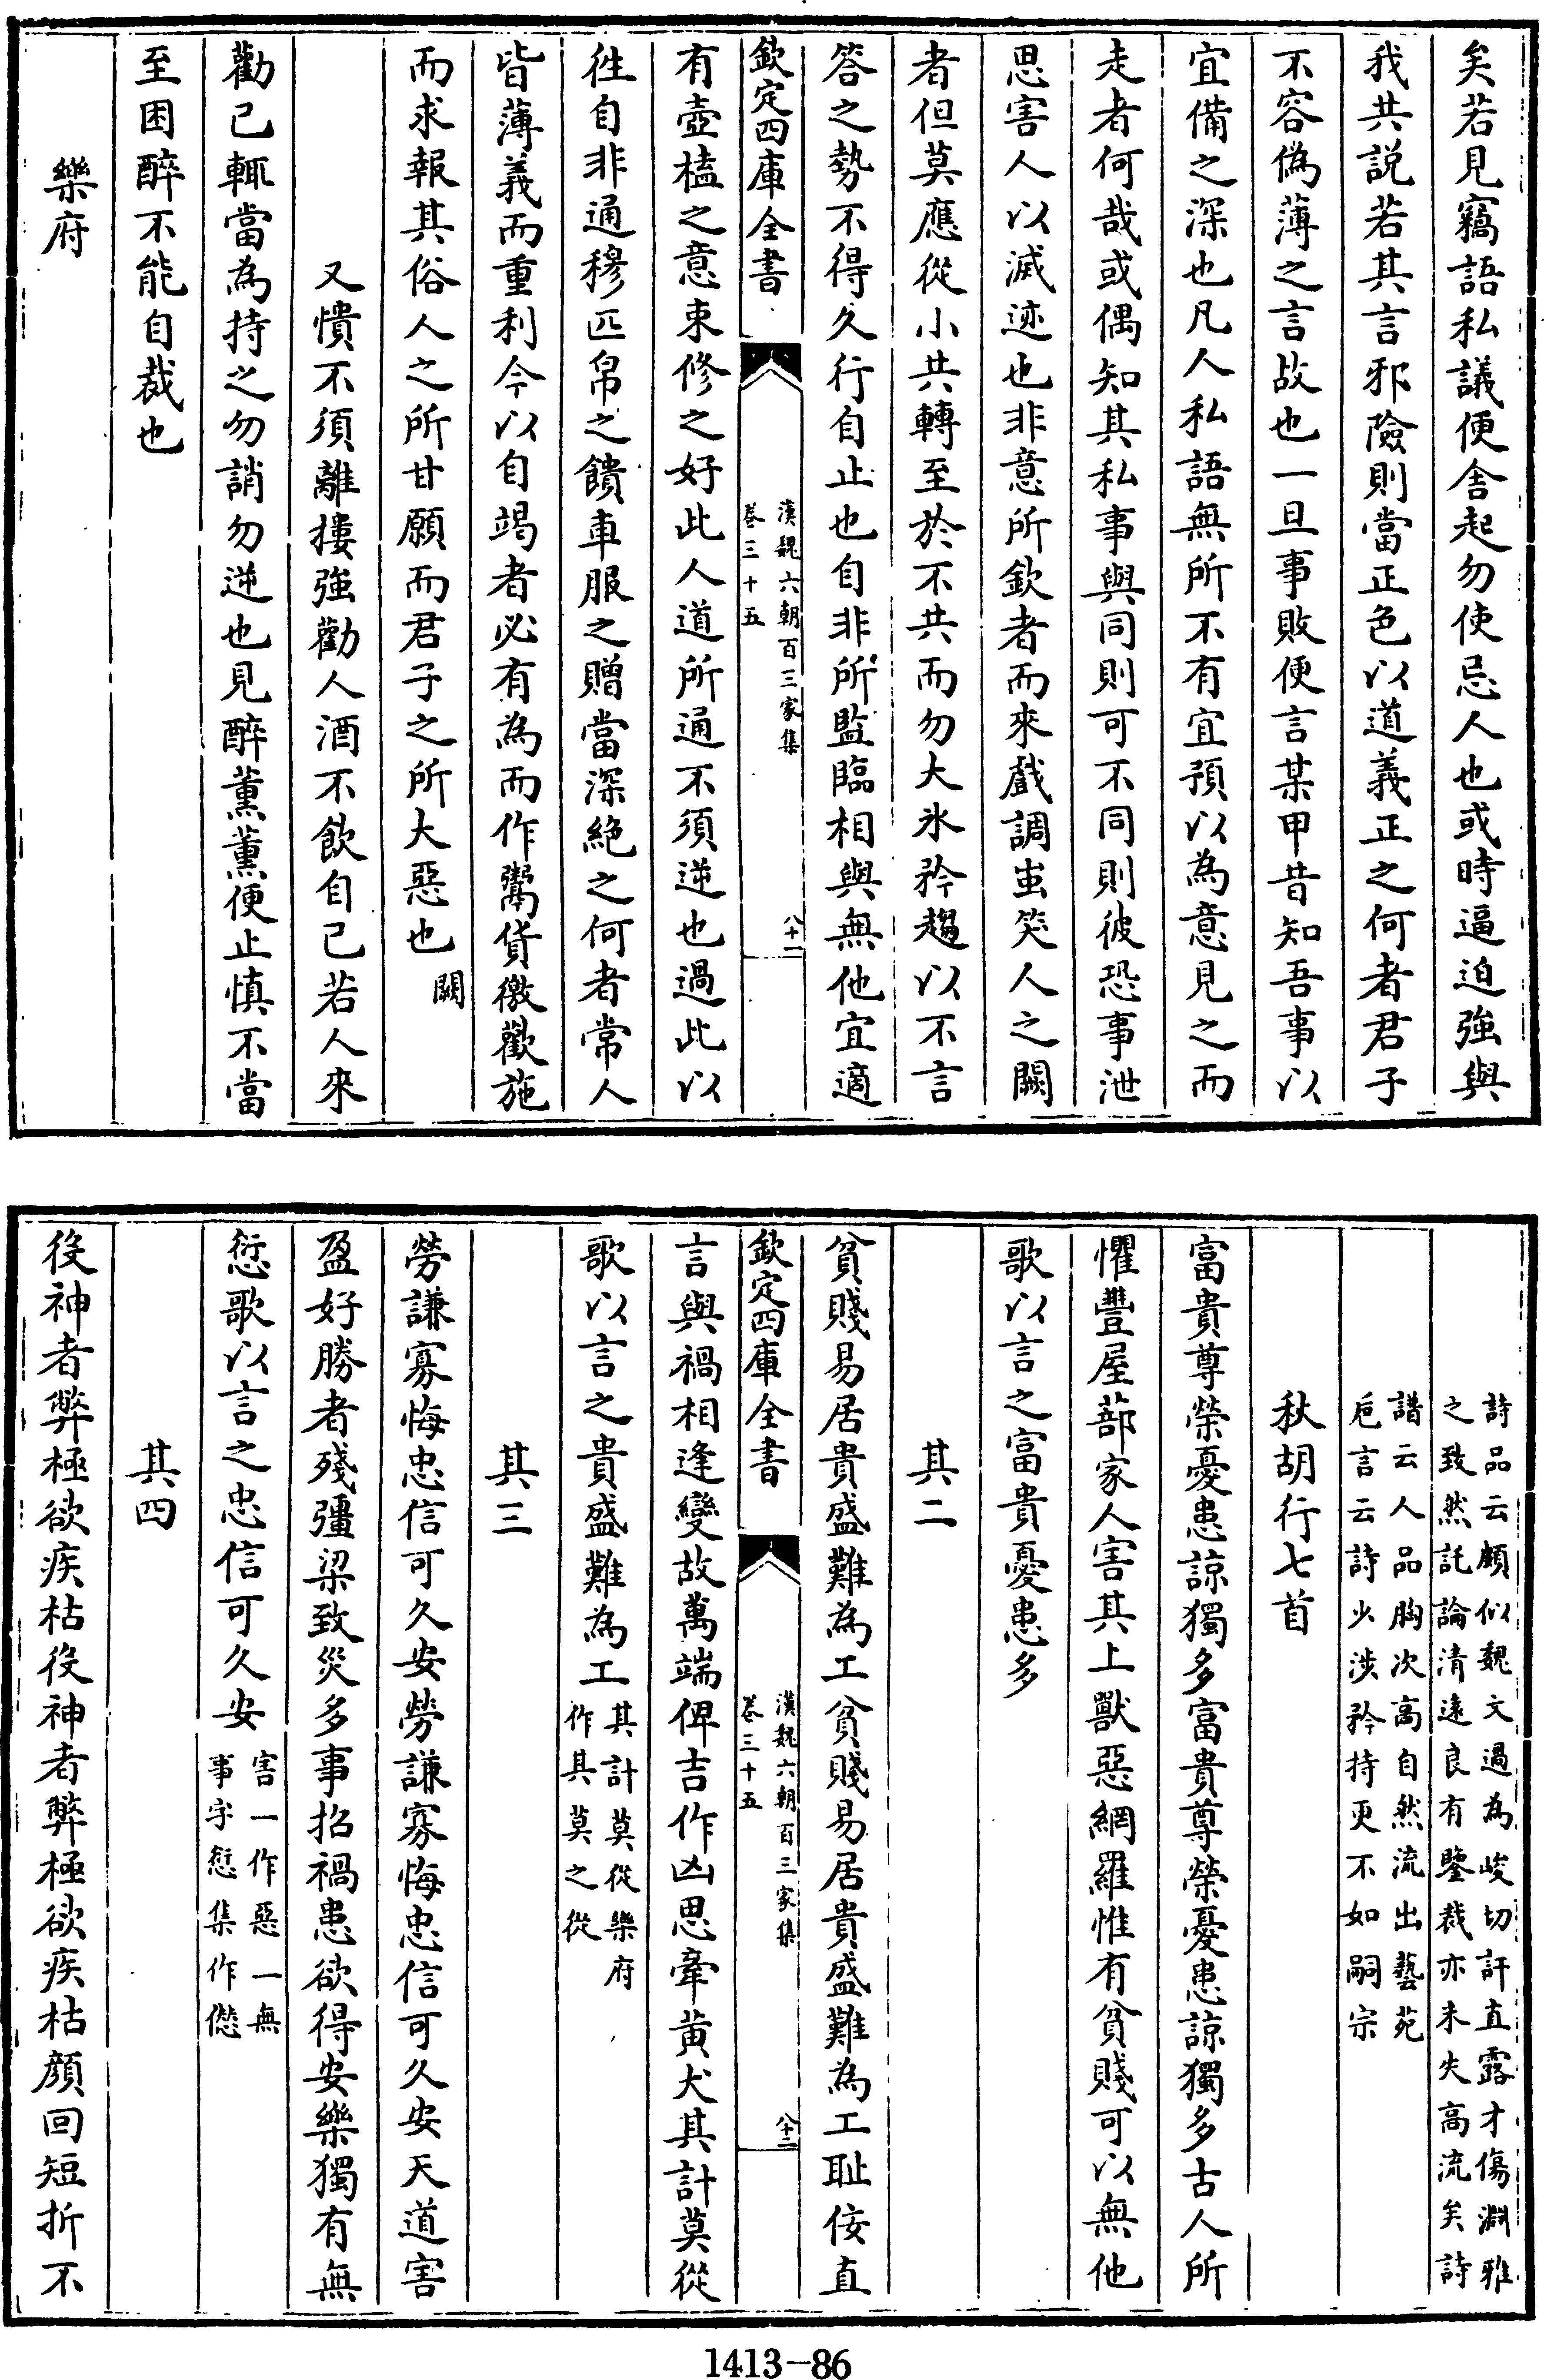 矣若見竊語私議便舍起勿使忌人也或時逼迫強與
我共説若其言邪險則當正色以道義正之何者君子
不容偽薄之言故也一旦事敗便言某甲昔知吾事以
宜備之深也凡人私語無所不有宜預以為意見之而
走者何哉或偶知其私事與同則可不同則彼恐事泄
思害人以滅迹也非意所欽者而來戲調蚩笑人之闕
者但莫應從小共轉至於不共而勿大氷矜趨以不言
答之勢不得久行自止也自非所監臨相與無他宜適
欽定四庫全書
漢魏六朝百三家集
卷三十五
八十一
有壺榼之意束修之好此人道所通不須逆也過此以
徃自非通穆匹帛之饋車服之贈當深絶之何者常人
皆薄義而重利今以自竭者必有為而作鬻貨徼歡施
而求報其俗人之所甘願而君子之所大惡也闕
又憒不須離摟強勸人酒不飲自已若人來
勸已輒當為持之勿誚勿逆也見醉薰薰便止慎不當
至困醉不能自裁也
樂府
詩品云頗似魏文過為峻切訐直露才傷淵雅
之致然託論清遠良有鑒裁亦未失高流矣詩
譜云人品胸次高自然流出藝苑
巵言云詩少涉矜持更不如嗣宗
秋胡行七首
富貴尊榮憂患諒獨多富貴尊榮憂患諒獨多古人所
懼豐屋蔀家人害其上獸惡網羅惟有貧賤可以無他
歌以言之富貴憂患多
其二
貧賤易居貴盛難為工貧賤易居貴盛難為工恥佞直
欽定四庫全書
漢魏六朝百三家集
卷三十五
八十二
言與禍相逢變故萬端俾吉作凶思牽黄犬其計莫從
歌以言之貴盛難為工
其計莫從樂府
作其莫之從
其三
勞謙寡悔忠信可久安勞謙寡悔忠信可久安天道害
盈好勝者殘彊梁致災多事招禍患欲得安樂獨有無
愆歌以言之忠信可久安
害一作惡一無
事字愆集作𠎝
其四
役神者弊極欲疾枯役神者弊極欲疾枯顔回短折不
1413—86